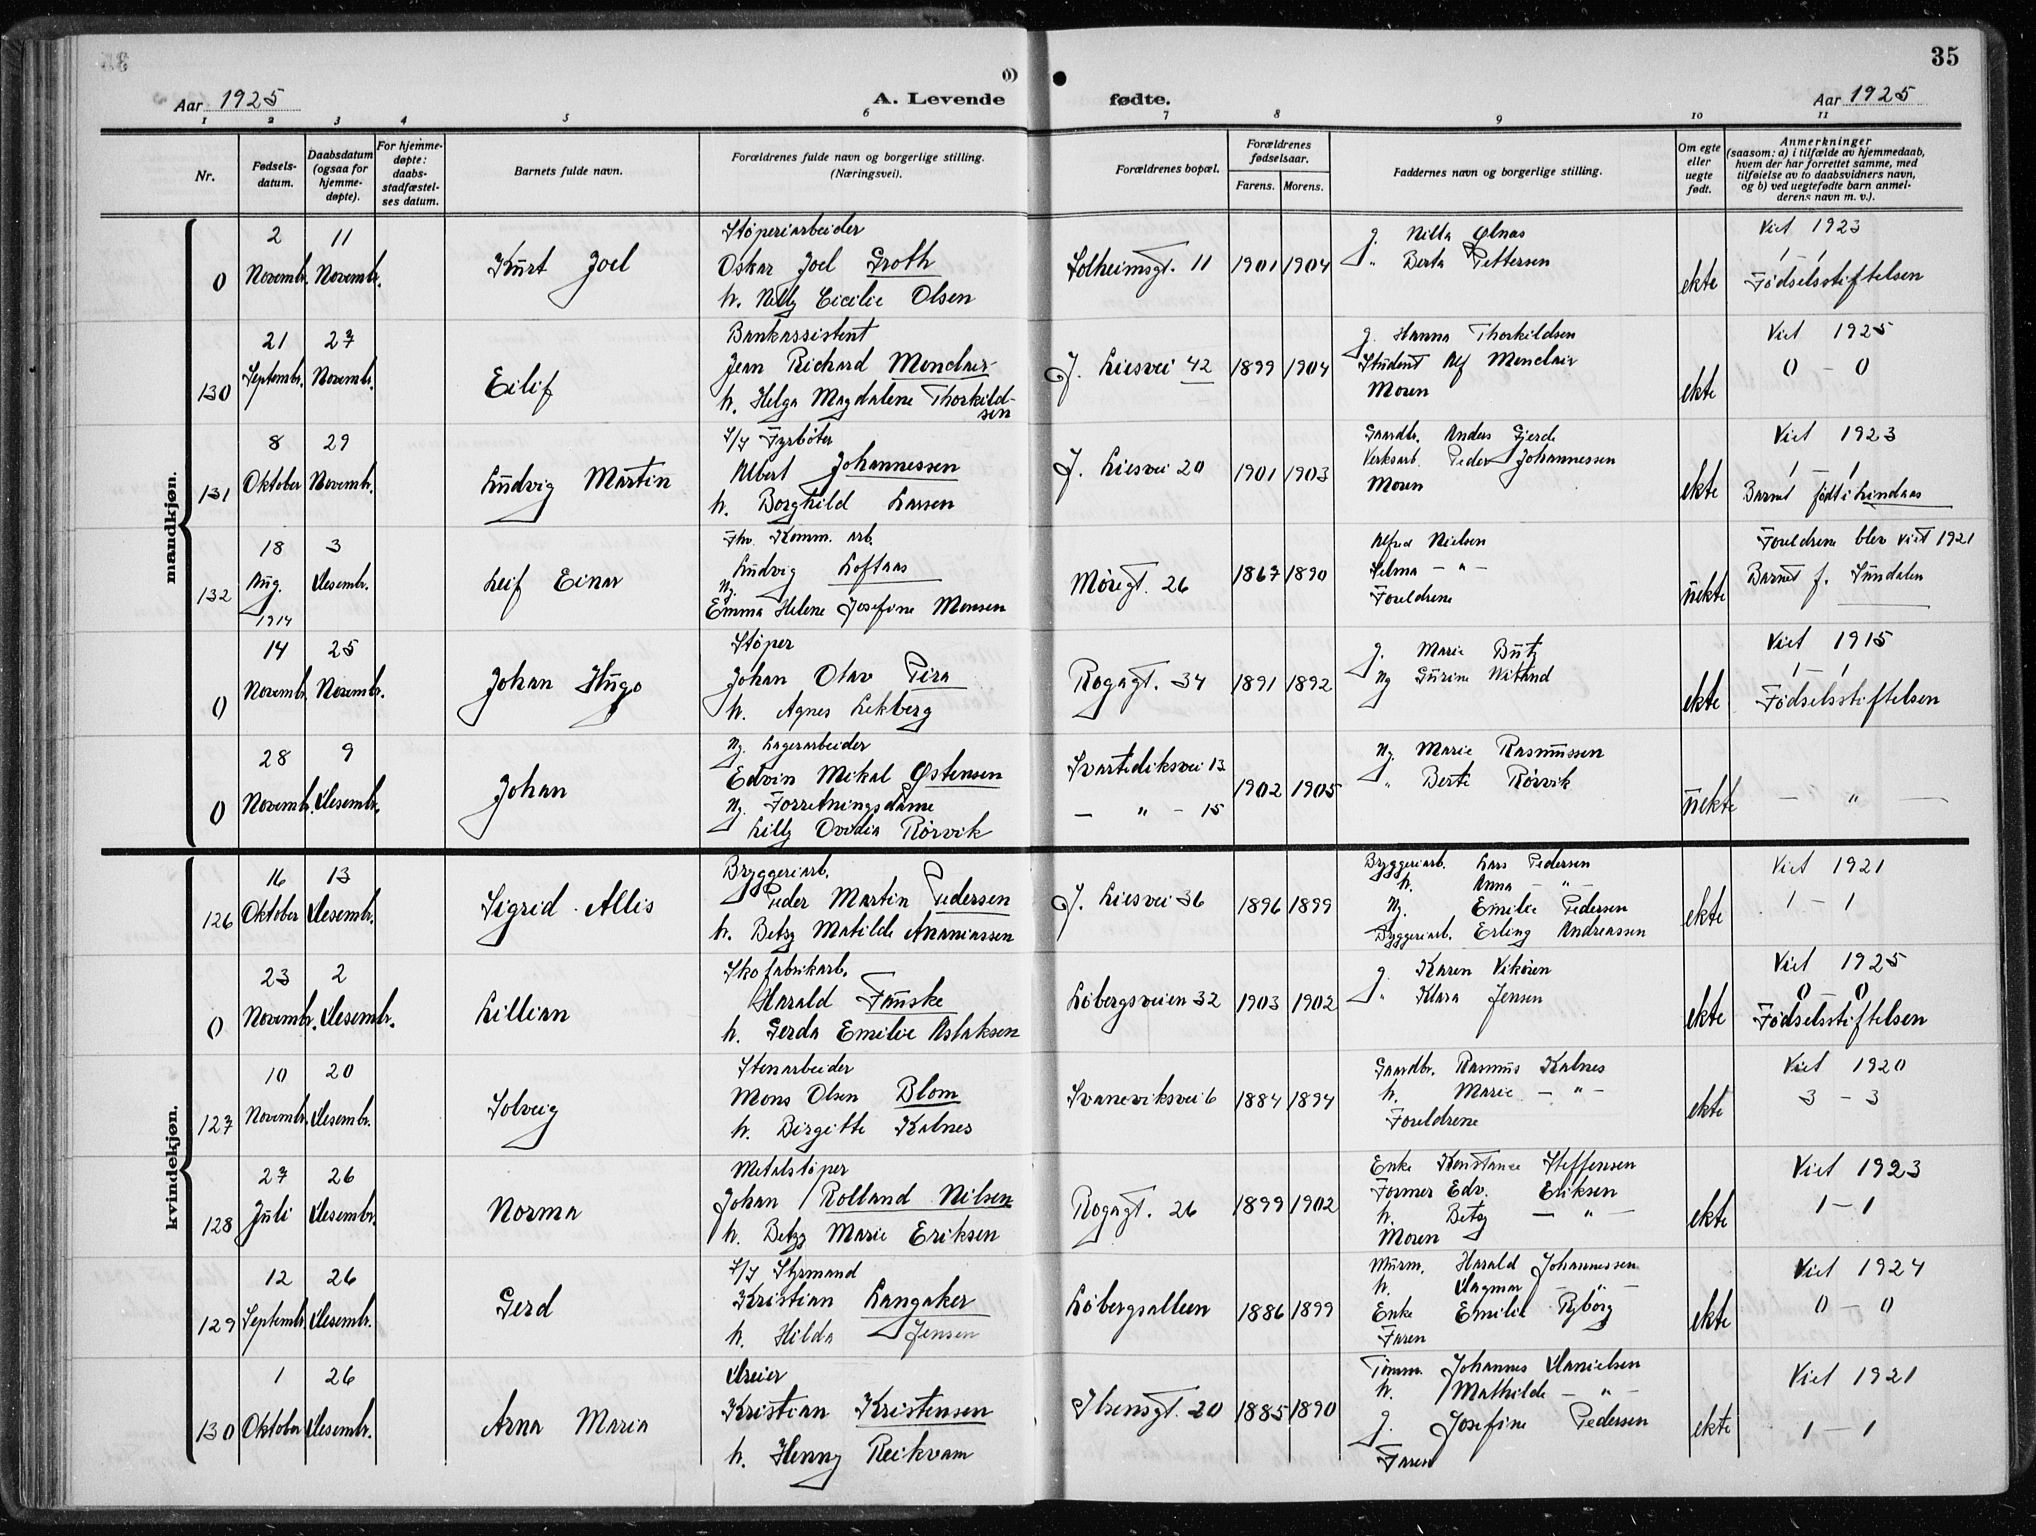 35
Aar 1925
A. Levende fødte.
Aar 1925
1 2 3 4 5 6 7 8 9 10 11
Nr.
Fødsels-
datum.
Daabsdatum
(ogsaa for
hjemme-
døpte).
For hjemme-
døpte:
daabs-
stadfæstel-
ses datum.
Barnets fulde navn.
Forældrenes fulde navn og borgerlige stilling.
(Næringsvei).
Forældrenes bopæl.
Forældrenes
fødselsaar.
Farens. Morens.
Faddernes navn og borgerlige stilling.
Om egte
eller
uegte
født.
Anmerkninger
(saasom: a) i tilfælde av hjemmedaab,
hvem der har forrettet samme, med
tilføielse av to daabsvidners navn,
og b) ved uegtefødte barn anmel-
derens navn m. v.).
mandkjøn.
0
2 Novembr.
11 Novembr.
Kurt Joel
Støperiarbeider
Oskar Joel Groth
h. Nelly Cicilie Olsen
Solheimsgt. 11
1901 1904
J. Nilla Ølnas
" Berta Pettersen
ekte
Viet 1923
1 - 1
Fødselsstiftelsen
130
21 Septembr.
27 Novembr.
Eilif
Bankassistent
Jean Richard Monclair
h. Helga Magdalene Thorkild-
sen
J. Liesvei 42
1899 1904
J. Hanna Thorkildsen
Student Alf Monclair
Moren
ekte
Viet 1925
0 - 0
131
8 Oktober
29 Novembr.
Ludvig Martin
S/S Fyrbøter
Albert Johannessen
h. Borghild Larsen
J. Liesvei 20
1901 1903
Gaardbr. Anders Gjerde
Verksarb. Peder Johannessen
Moren
ekte
Viet 1923
1 - 1
Barnet født i Lindaas
132
18 Aug. 1914
3 Desembr.
Leif Einar
Fhv. Komm. arb.
Ludvig Loftaas
Ng. Emma Helene Josefine Monsen
Møregt. 26
1867 1890
Alfred Nielsen
Selma - " -
Foreldrene
uekte
Foreldrene blev viet 1921
Barnet f. Sundalen
0
14 Novembr.
25 Novembr.
Johan Hugo
Støper
Johan Olav Pira
h. Agnes Lekberg
Rogagt. 34
1891 1892
J. Marie Butz
Ng Gurine Nitland
ekte
Viet 1915
1 - 1
Fødselsstiftelsen
0
28 Novembr.
9 Desembr.
Johan
Ng. Lagerarbeider
Edvin Mikal Østensen
Ng. Forretningsdame
Lilly Ovidia Rørvik
Svartediksvei 13
— " - 15
1902 1905
Ng. Marie Rasmussen
" Berte Rørvik
uekte
— " —
kvindekjøn.
126
16 Oktober
13 Desembr.
Sigrid Allis
Bryggeriarb.
Peder Martin Pedersen
h. Betsy Matilde Ananiassen
J. Liesvei 36
1896 1899
Bryggeriarb. Lars Pedersen
h. Anna - " -
Ng. Emilie Pedersen
Bryggeriarb. Erling Andreassen
ekte
Viet 1921
1 - 1
0
23 Novembr.
2 Desembr.
Lillian
Skofabrikarb.
Harald Fauske
h. Gerda Emilie Aslaksen
Løbergsveien 32
1903 1902
J. Karen Vikøren
" Klara Jensen
ekte
Viet 1925
0 - 0
Fødselsstiftelsen
127
10 Novembr.
20 Desembr.
Solveig
Stenarbeider
Mons Olsen Blom
h. Birgitte Kalnes
Svaneviksvei 6
1884 1894
Gaardbr. Rasmus Kalnes
h. Marie - " -
Foreldrene
ekte
Viet 1920
3 - 3
128
27 Juli
26 Desembr.
Norma
Metalstøper
Johan Rolland Nilsen
h. Betzy Marie Eriksen
Rogagt. 26
1899 1902
Enke Konstance Steffensen
Former Edv. Eriksen
h. Betsy — " —
Moren
ekte
Viet 1923
1 - 1
129
12 Septembr.
26 Desembr.
Gerd
S/S Styrmand
Kristian Langaker
h. Hilda Jensen
Løbergsalleen
1886 1899
Murm. Harald Johannessen
h. Dagmar - " -
Enke Emilie Ryborg
Faren
ekte
Viet 1924
0 - 0
130
1 Oktober
26 Desembr.
Arna Maria
Dreier
Kristian Kristensen
h. Henny Reikvam
Ibsensgt. 20
1885 1890
Tømm. Johannes Danielsen
h. Mathilde - " -
J. Josefine Pedersen
Faren
ekte
Viet 1921
1 - 1